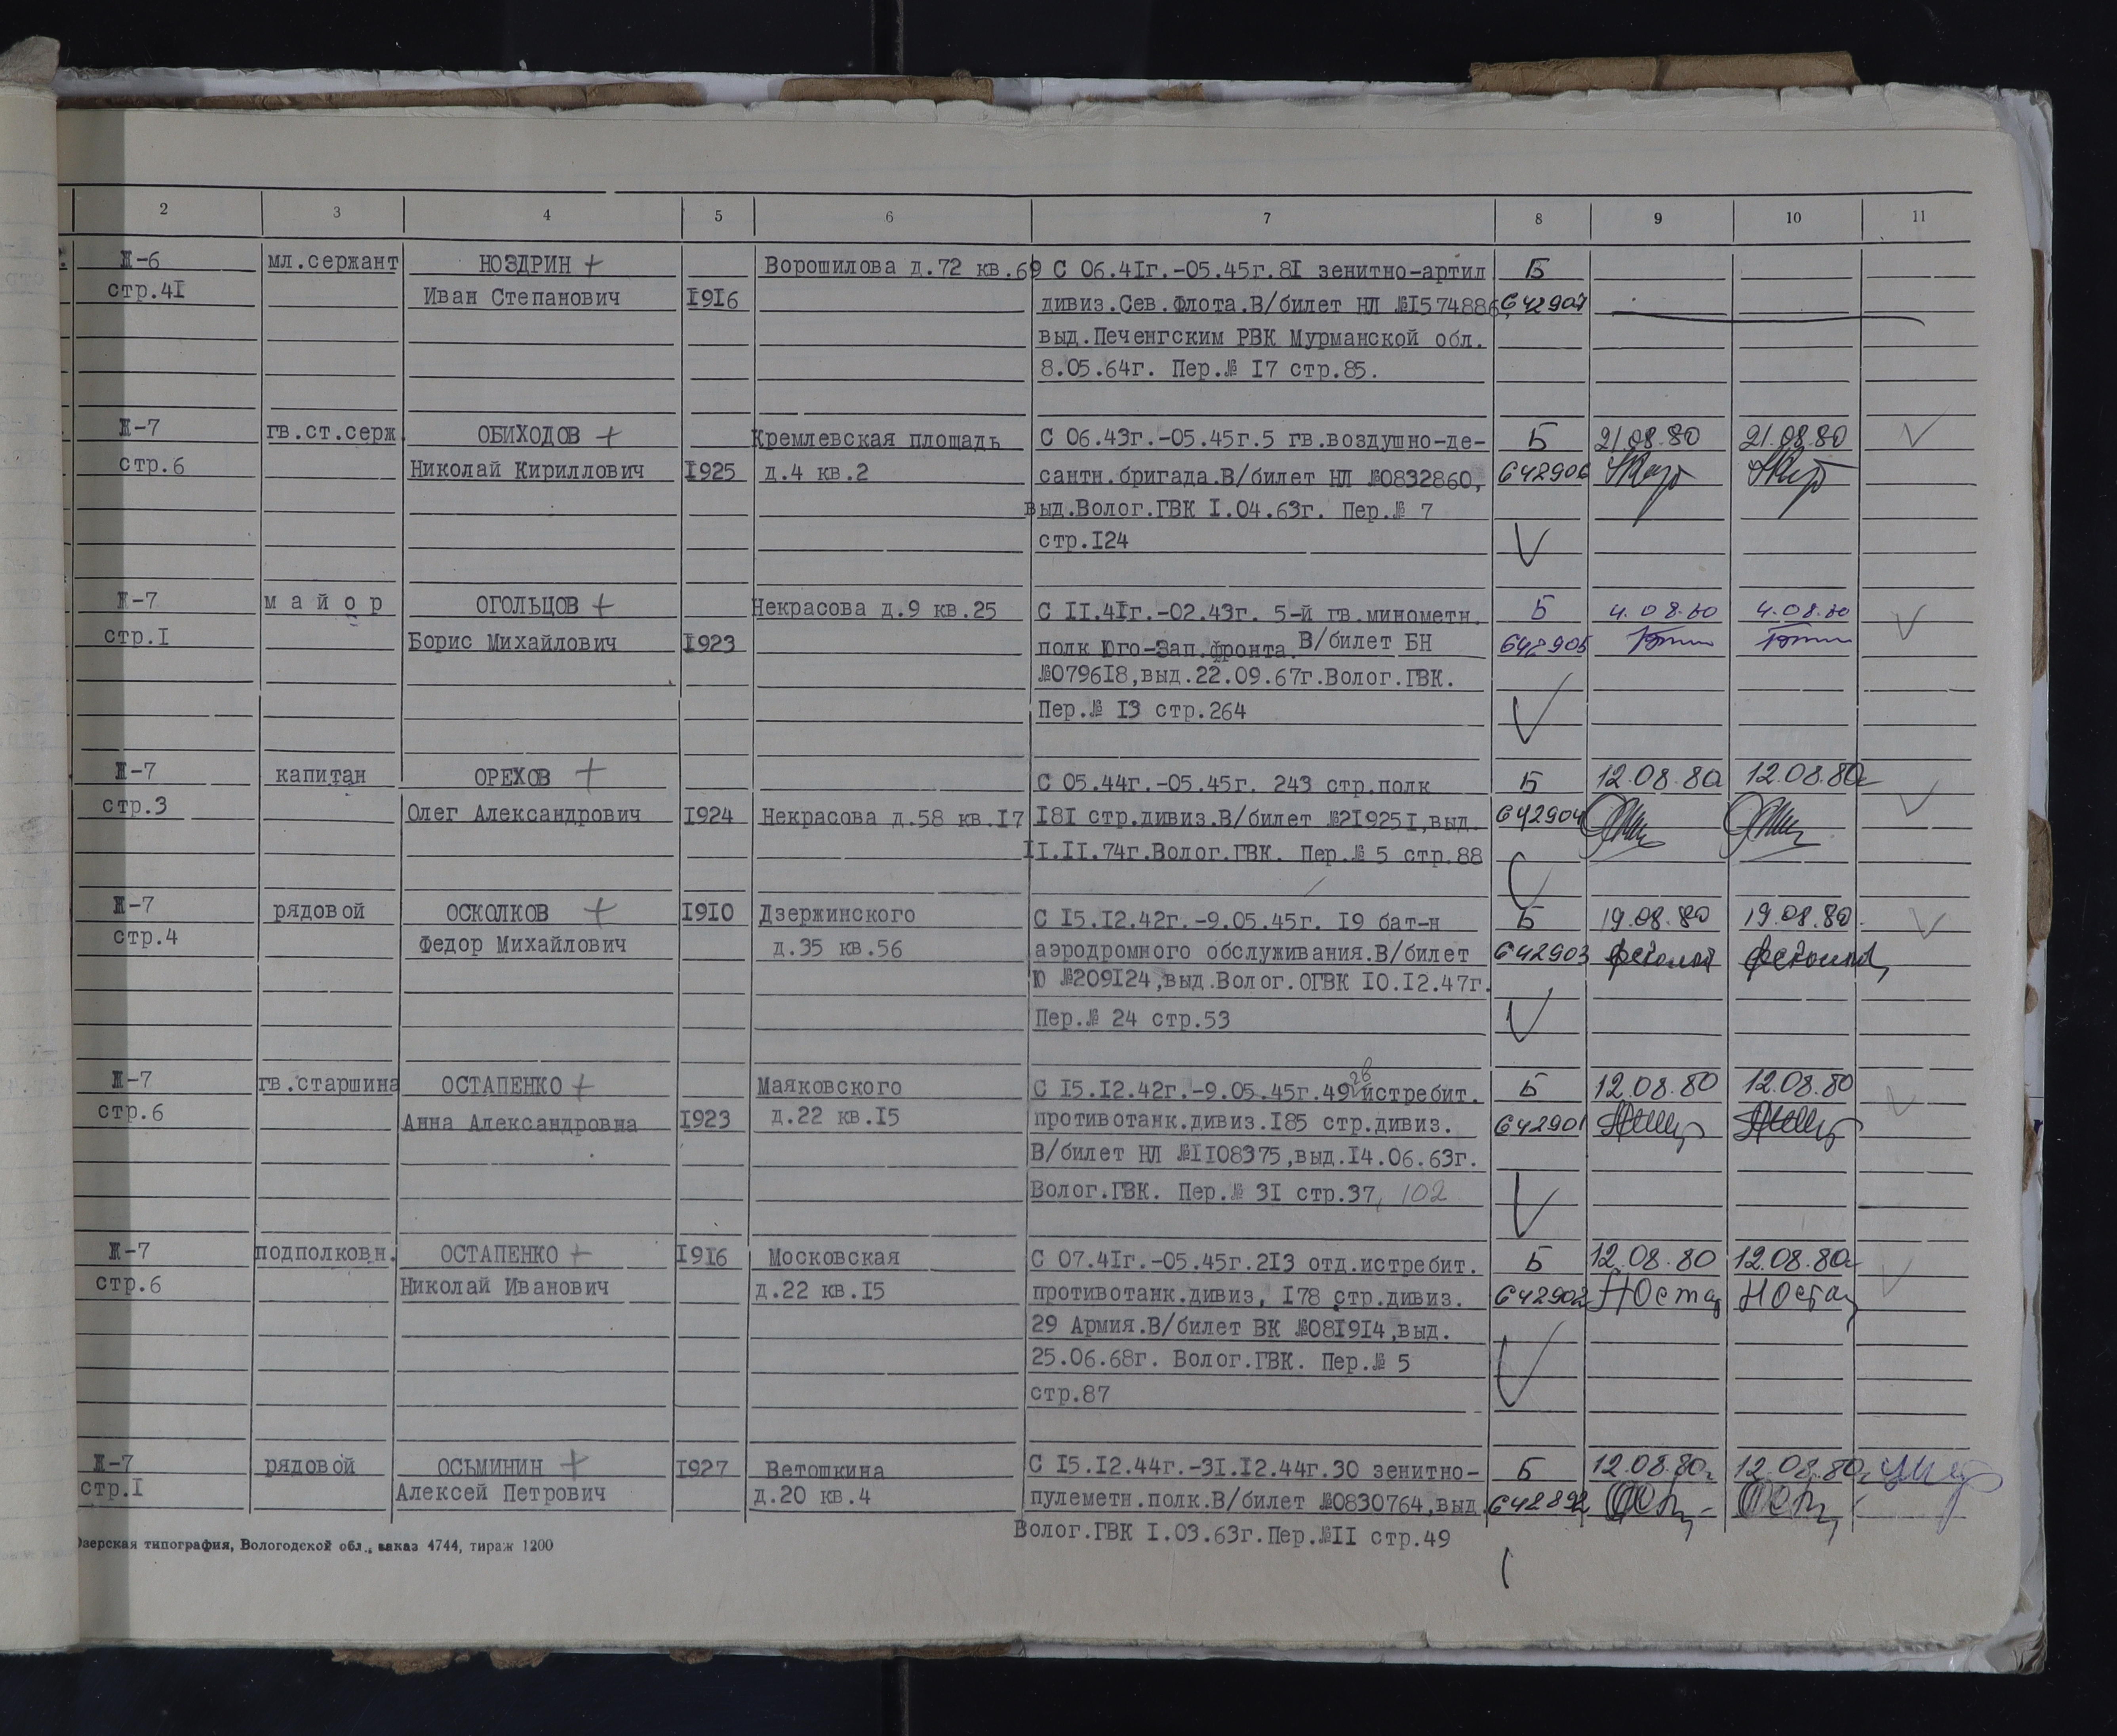 2 3 4 5 6 7 8 9 10 11
Ж-6 мл.сержант НОЗДРИН + Ворошилова д.72 кв.69 С 06.41г.-05.45г.81 зенитно-артил Б
стр.41 Иван Степанович 1916 дивиз.Сев.Флота.В/билет НЛ №1574886, 642907
выд.Печенгским РВК Мурманской обл.
8.05.64г. Пер.№ 17 стр.85.
Ж-7 гв.ст.серж. ОБИХОДОВ + Кремлевская площадь С 06.43г.-05.45г.5 гв.воздушно-де- Б 21.08.80 21.08.80
стр.6 Николай Кириллович 1925 д.4 кв.2 сантн.бригада.В/билет НЛ №0832860, 642906
выд.Волог.ГВК 1.04.63г. Пер.№ 7
стр.124
Ж-7 майор ОГОЛЬЦОВ + Некрасова д.9 кв.25 С 11.41г.-02.43г. 5-й гв.минометн. Б 4.08.80 4.08.80
стр.1 Борис Михайлович 1923 полк Юго-Зап.фронта.В/билет БН 642905
№079618,выд.22.09.67г.Волог.ГВК.
Пер.№ 13 стр.264
Ж-7 капитан ОРЕХОВ + С 05.44г.-05.45г. 243 стр.полк Б 12.08.80 12.08.80г
стр.3 Олег Александрович 1924 Некрасова д.58 кв.17 181 стр.дивиз.В/билет №219251,выд. 642904
11.11.74г.Волог.ГВК. Пер.№ 5 стр.88
Ж-7 рядовой ОСКОЛКОВ + 1910 Дзержинского С 15.12.42г.-9.05.45г. 19 бат-н Б 19.08.80 19.08.80.
стр.4 Федор Михайлович д.35 кв.56 аэродромного обслуживания.В/билет 642903
Ю №209124,выд.Волог.ОГВК 10.12.47г.
Пер.№ 24 стр.53
Ж-7 гв.старшина ОСТАПЕНКО + Маяковского С 15.12.42г.-9.05.45г.49 гв истребит. Б 12.08.80 12.08.80
стр.6 Анна Александровна 1923 д.22 кв.15 противотанк.дивиз.185 стр.дивиз. 642901
В/билет НЛ №1108375,выд.14.06.63г.
Волог.ГВК. Пер.№ 31 стр.37, 102
Ж-7 подполковн. ОСТАПЕНКО + 1916 Московская С 07.41г.-05.45г.213 отд.истребит. Б 12.08.80 12.08.80г
стр.6 Николай Иванович д.22 кв.15 противотанк.дивиз, 178 стр.дивиз. 642902 НОстап НОстап
29 Армия.В/билет ВК №081914,выд.
25.06.68г. Волог.ГВК. Пер.№ 5
стр.87
Ж-7 рядовой ОСЬМИНИН + 1927 Ветошкина С 15.12.44г.-31.12.44г.30 зенитно- Б 12.08.80г 12.08.80г
стр.1 Алексей Петрович д.20 кв.4 пулеметн.полк.В/билет №0830764,выд. 642892
Волог.ГВК 1.03.63г.Пер.№11 стр.49
зерская типография, Вологодской обл., заказ 4744, тираж 1200